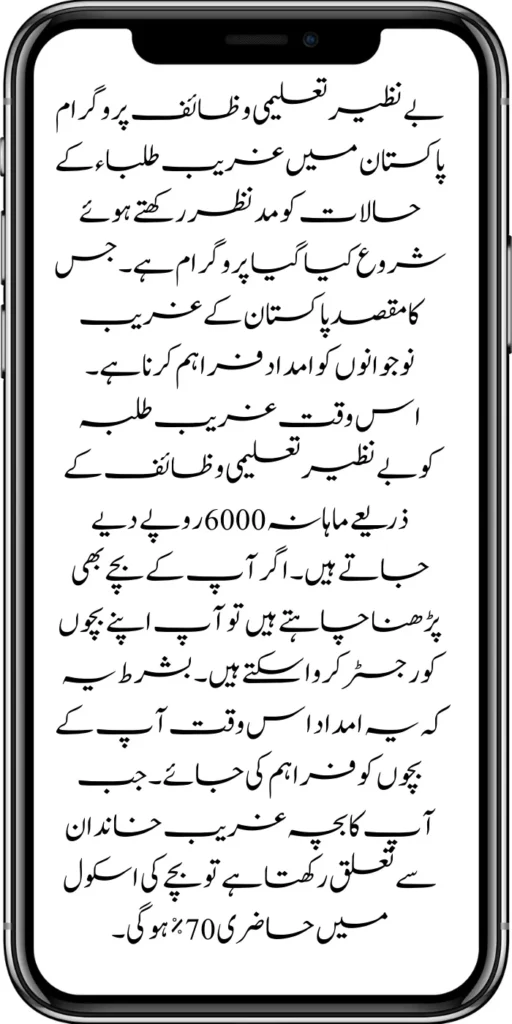 بے نظیر تعلیمی وظائف پروگرام
پاکستان میں غریب طلباء کے
حالات کو مدنظر رکھتے ہوئے
شروع کیا گیا پروگرام ہے۔ جس
کا مقصد پاکستان کے غریب
نوجوانوں کو امداد فراہم کرنا ہے۔
اس وقت غریب طلبہ
کو بے نظیر تعلیمی وظائف کے
ذریعے ماہانہ 6000 روپے دیے
جاتے ہیں۔ اگر آپ کے بچے بھی
پڑھنا چاہتے ہیں تو آپ اپنے بچوں
کو رجسٹر کروا سکتے ہیں۔ بشرط یہ
کہ یہ امداد اس وقت آپ کے
بچوں کو فراہم کی جائے۔ جب
آپ کا بچہ غریب خاندان
سے تعلق رکھتا ہے تو بچے کی اسکول
میں حاضری 70٪ ہوگی۔